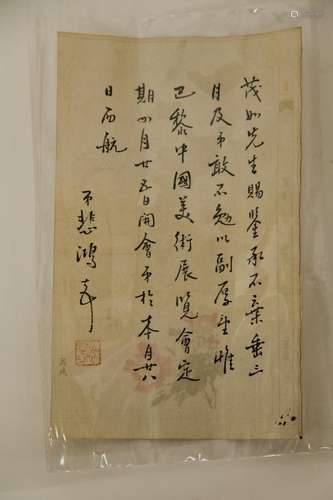 茂如先生賜鑒承不棄垂三
月及弟敢不勉以副厚望惟
巴黎中國美術展覽會定
期四月廿五日開會弟於本月廿八
日而航
弟悲鴻